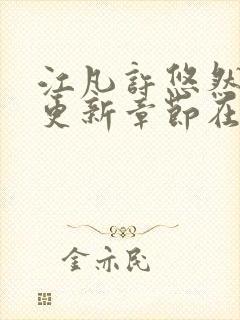 江凡许悠然
更新章节在
金亦民